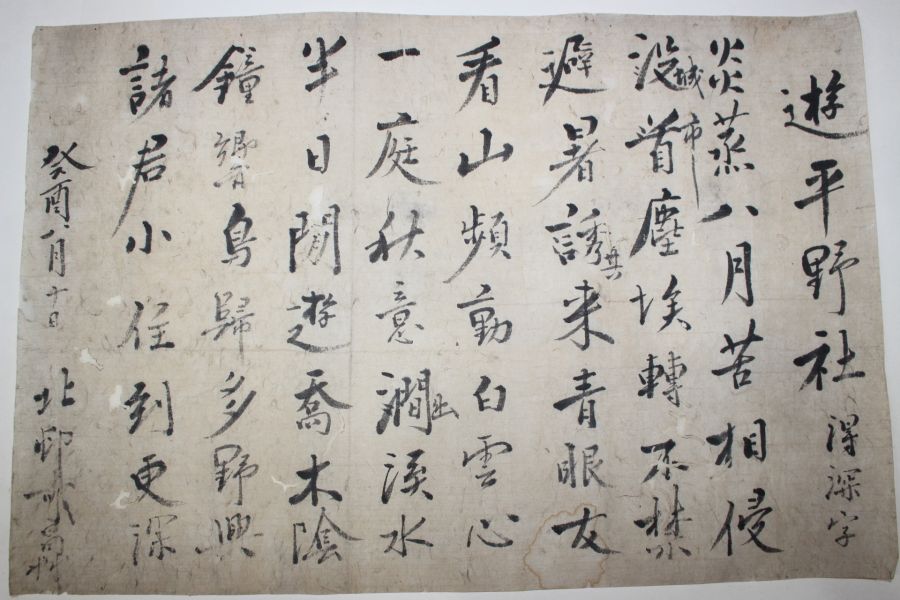 遊平野社 得深字
炎蒸八月苦相侵
没首塵埃轉不禁
城市
避暑誘来青眼友
共
看山頻勤白雲心
一庭秋意澗溪水
出
半日閒遊喬木陰
鐘響鳥歸多野興
諸君小住到更深
癸酉八月十日 北邨